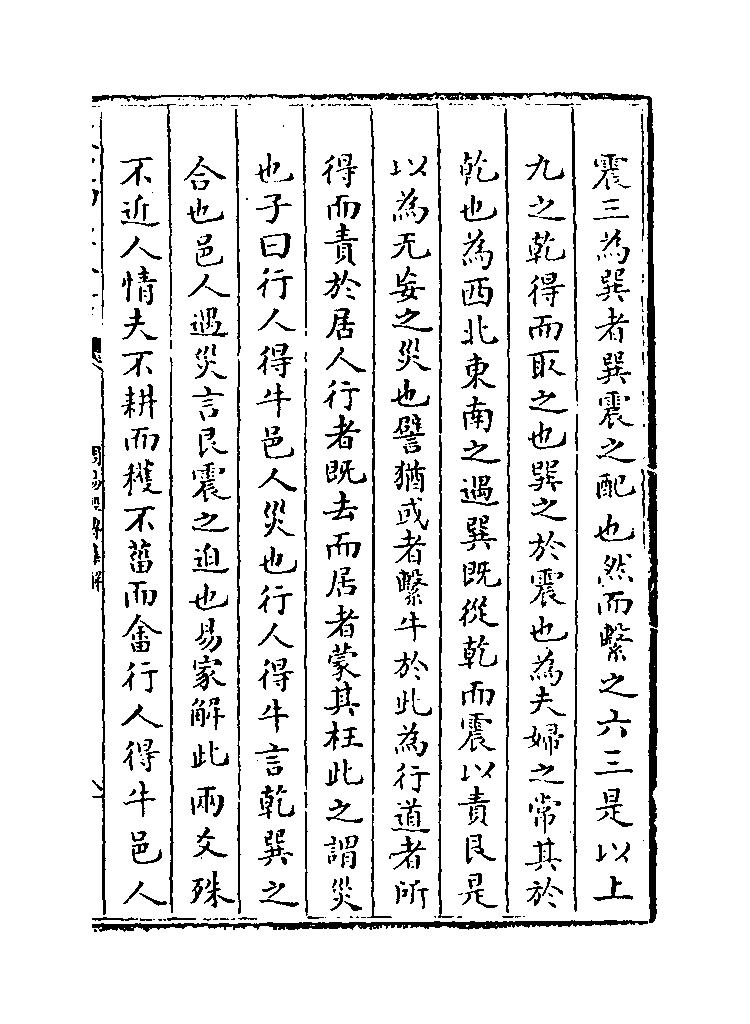 震三為巽者巽震之配也然而繫之六三是以上
九之乾得而取之也巽之於震也為夫婦之常其於
乾也為西北東南之遇巽既從乾而震以責艮是
以為无妄之災也譬猶或者繫牛於此為行道者所
得而責於居人行者既去而居者蒙其枉此之謂災
也子曰行人得牛邑人災也行人得牛言乾巽之
合也邑人遇災言艮震之迫也易家解此兩爻殊
不近人情夫不耕而穫不菑而畬行人得牛邑人